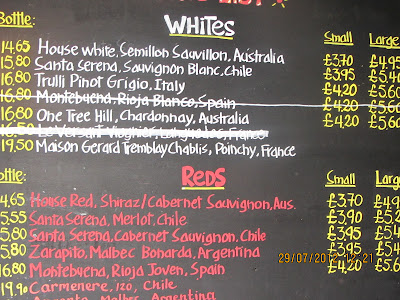 LIST
Bottle: WHITES Small Large
14.65 House White, Semillon Sauvillon, Australia £3.70 £4.95
15.80 Santa Serena, Sauvignon Blanc, Chile £3.95 £5.40
16.80 Trulli Pinot Grigio, Italy £4.20 £5.60
16.80 Montebuena, Rioja Blanco, Spain £4.20 £5.60
16.80 One Tree Hill, Chardonnay, Australia £4.20 £5.60
16.50 Le Versant Viognier, Languedoc, France
19.50 Maison Gerard Tremblay Chablis, Poinchy, France
Bottle: REDS Small Large
4.65 House Red, Shiraz/Cabernet Sauvignon, Aus. £3.70 £4.9
5.55 Santa Serena, Merlot, Chile £3.90 £5.2
5.80 Santa Serena, Cabernet Sauvignon, Chile £3.95 £5.4
5.80 Zarapito, Malbec Bonarda, Argentina £3.95 £5.4
16.80 Montebuena, Rioja Joven, Spain £4.20 £5.6
19.90 Carmenere, 120, Chile
Malbec, Argentina
29/07/2012 12:21